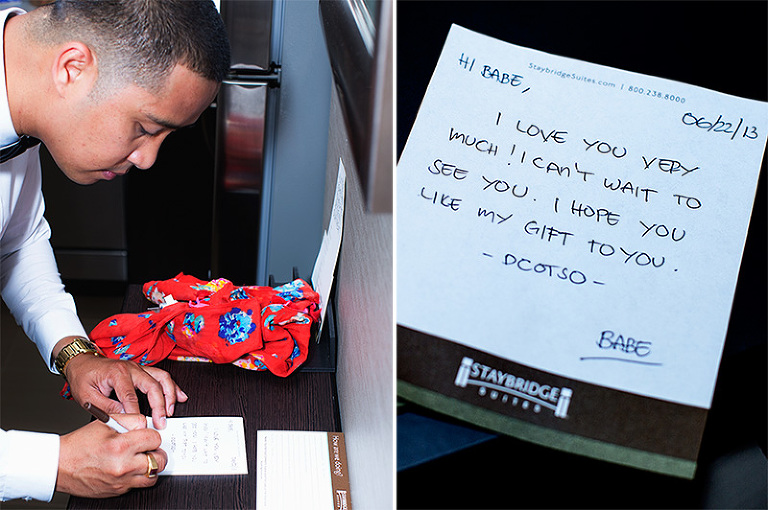 StaybridgeSuites.com | 800.238.8000
HI BABE,
06/22/13
I LOVE YOU VERY
MUCH! I CAN'T WAIT TO
SEE YOU. I HOPE YOU
LIKE MY GIFT TO YOU.
- DCOTSO -
BABE
STAYBRIDGE
SUITES
STAYBRIDGE